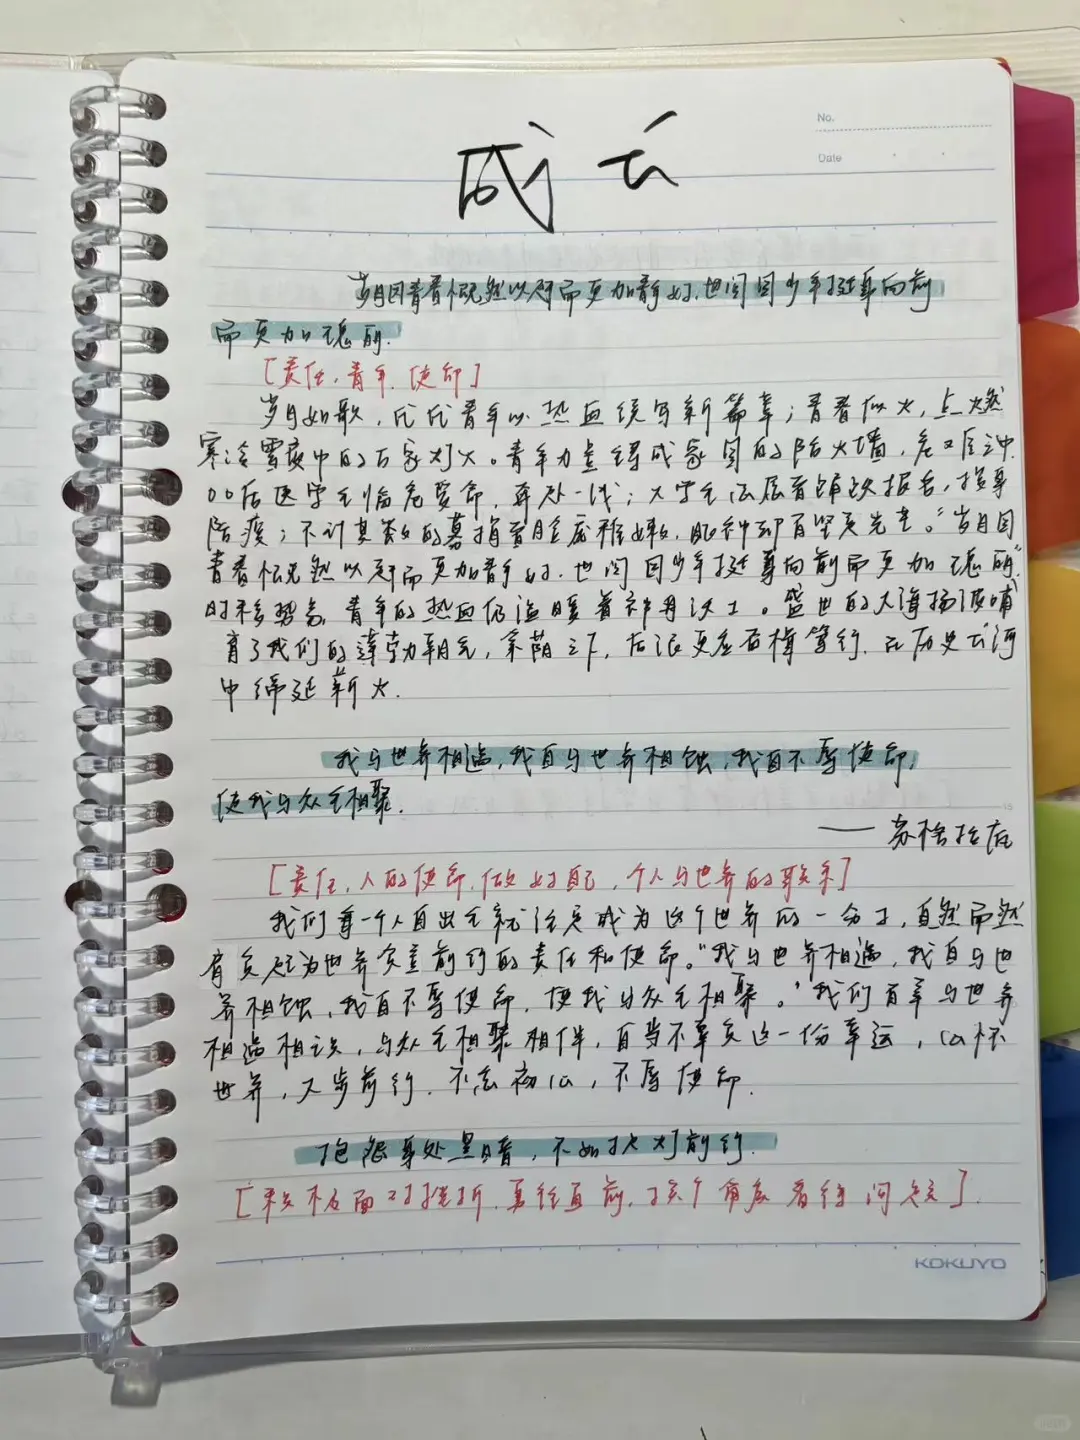 No.
Date
成长
岁月因青春慨然以赴而更加静好,世间因少年挺身向前
而更加瑰丽.
[责任,青年,使命]
岁月如歌,代代青年以热血续写新篇章;青春似火,点燃
寒冷雪夜中的万家灯火。青年力量铸成家国的防火墙,危难之中
00后医学生临危受命,奔赴一线;大学生法展报告,指导
防疫;不计其数的募捐者脸庞稚嫩,眼神却有坚毅光芒。“岁月因
青春慨然以赴而更加静好,世间因少年挺身向前而更加瑰丽”
时移势易,青年的热血仍温暖着神州沃土。盛世的大海扬波哺
育了我们的蓬勃朝气,余荫之下,后浪更应奋楫笃行,在历史长河
中绵延薪火.
我与世界相遇,我自与世界相蚀,我自不辱使命,
使我与众生相聚.
——苏格拉底
[责任,人的使命,做好自己,个人与世界的联系]
我们每一个人自出生就注定成为这个世界的一分子,自然而然
有负起为世界负重前行的责任和使命。“我与世界相遇,我自与世
界相蚀,我自不辱使命,使我与众生相聚。”我们有幸与世界
相遇相识,与众生相聚相伴,自当不辜负这一份幸运,心怀
世界,大步前行.不忘初心,不辱使命.
抱怨身处黑暗,不如提灯前行.
[积极面对挫折,勇往直前,换个角度看待问题].
KOKUYO